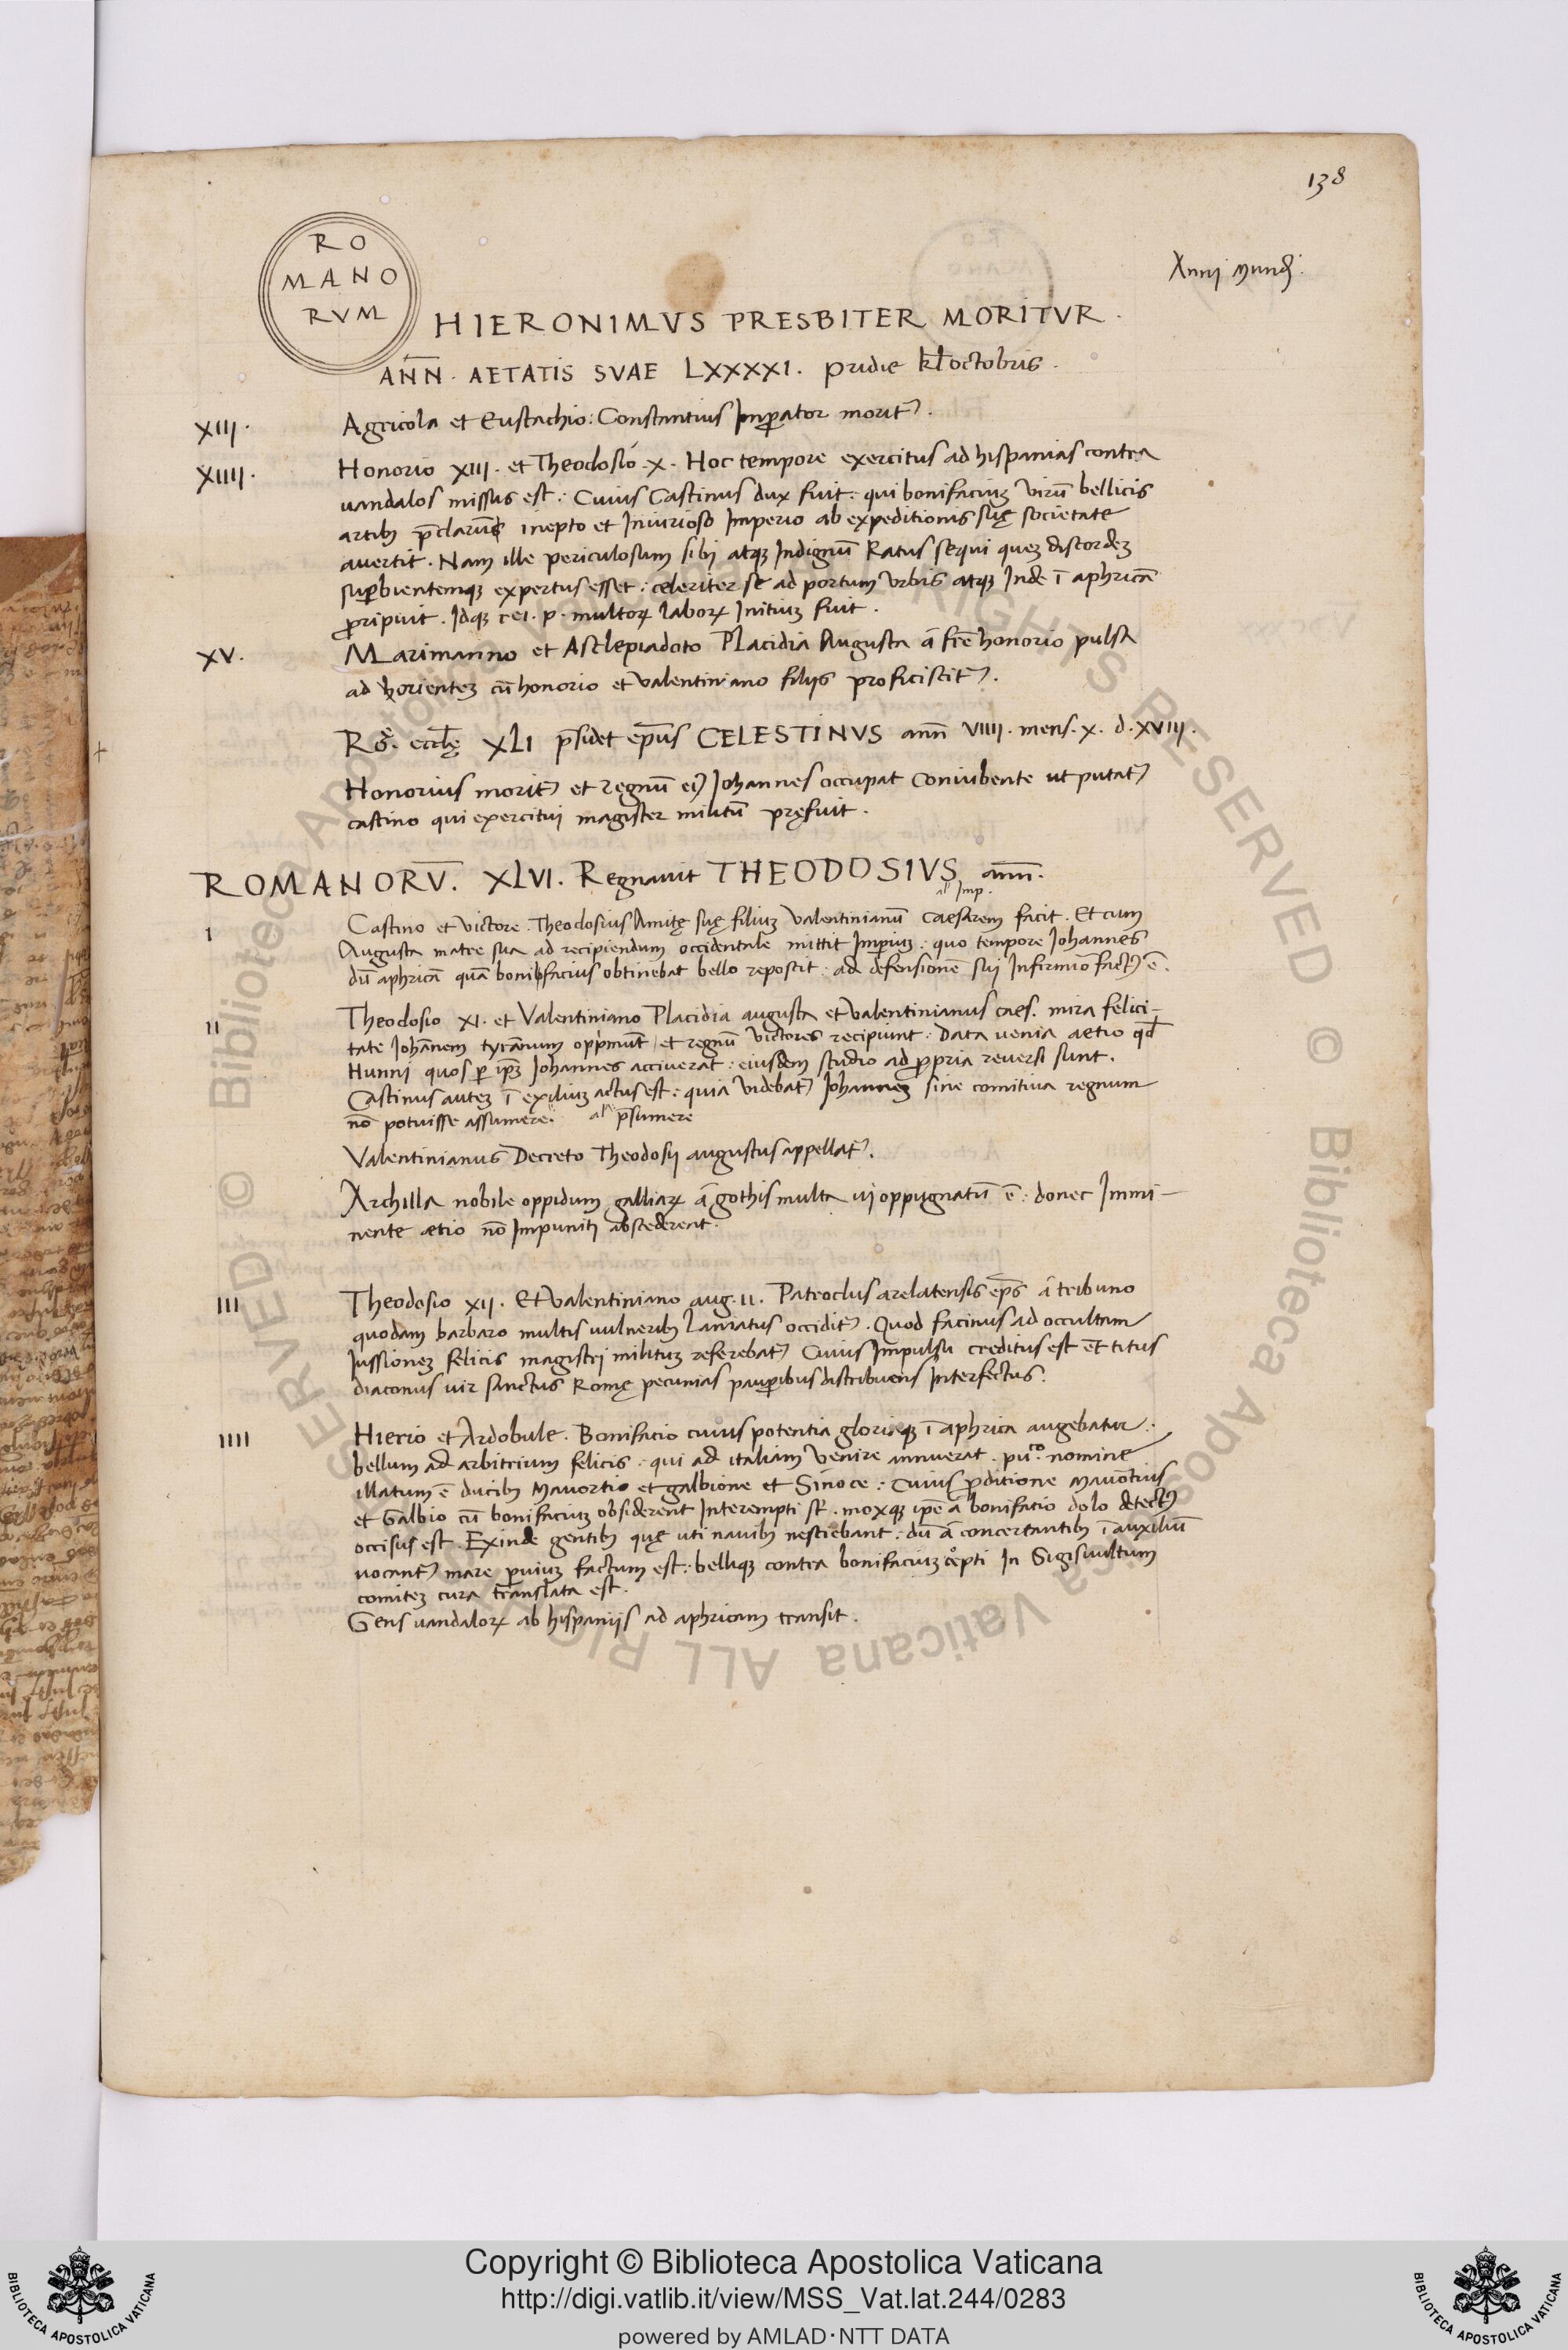 138
RO
MANO
RVM
Anni mundi.
HIERONIMVS PRESBITER MORITVR.
AÑN. AETATIS SVAE LXXXXI. pridie kl̄ octobris.
XIII. Agricola et Eustachio: Constantius Imꝑator moritᷣ.
XIIII. Honorio XIII. et Theodosio .X. Hoc tempore exercitus ad hispanias contra
uandalos missus est: Cuius Castinus dux fuit: qui bonifaciuꝫ virū bellicis
artibꝫ p̄clarū inepto et Iniurioso Imperio ab expeditionis suę societate
auertit. Nam ille periculosum sibi atqꝫ Indignū Ratus sequi queꝫ discordeꝫ
suꝑbientemqꝫ expertus esset: celeriter se ad portum Vrbis atqꝫ Inde ī aphricā
ꝓripuit. Idqꝫ rei. p. multoꝝ laboꝝ Initiuꝫ fuit.
XV. Marimanno et Asclepiadoto Placidia Augusta ā fr̄e honorio pulsa
ad orienteꝫ cū honorio et Valentiniano filijs proficiscitᷣ.
Ro. eccl̄ę XLI p̄sidet ep̄us CELESTINVS anñ VIIII. mens. X. d. XVIII.
Honorius moritᷣ et regnū eiꝰ Johannes occupat coniubente ut putatᷣ
castino qui exercitui magister militū pręfuit.
ROMANORV̄. XLVI. Regnauit THEODOSIVS anñ.
al' Imp.
I Castino et victore. Theodosius Amitę suę filiuꝫ Valentinianū Caesarem facit. Et cum
Augusta matre sua ad recipiendum occidentale mittit Imꝑiuꝫ: quo tempore Johannes
dū aphricā quā bonifacius obtinebat bello reposcit: ad defensionē sui Infirmior factꝰ ē.
II Theodosio XI. et Valentiniano Placidia augusta et Valentinianus caes. mira felici-
tate Johānem tyrānum opp̄munt et regnū victores recipiunt: Data uenia aetio qd̄
Hunni quos ꝑ ip̄ꝫ Johannes acciuerat: eiusdem studio ad ꝓpria reuersi sunt.
Castinus auteꝫ ī exiliuꝫ actus est: quia videbatᷣ Johanneꝫ sine comitiua regnum
nō potuisse assumere. al' p̄sumere
Valentinianus Decreto Theodosij augustus appellatᷣ.
Archilla nobile oppidum galliaꝝ ā gothis multa ui oppugnatū ē: donec Immi-
nente aetio nō Impuniti abscederent.
III Theodosio XII. Et Valentiniano aug. II. Patroclus arelatensis ep̄s ā tribuno
quodam barbaro multis uulneribꝫ laniatus occiditᷣ. Quod facinus ad occultam
Jussioneꝫ felicis magistri milituꝫ referebatᷣ Cuius Impulsu creditus est et̄ titus
diaconus uir sanctus Romę pecunias pauꝑibus distribuens Interfectus.
IIII Hierio et Ardobule. Bonifacio cuius potentia gloriaqꝫ ī aphrica augebatur.
bellum ad arbitrium felicis: qui ad italiam venire annuerat. puᶜᵒ. nomine
illatum ē ducibꝫ Mauortio et galbione et Sinoce: Cuius ꝓditione mauōtius
et Galbio cū bonifaciuꝫ obsiderent Interempti st̄. moxqꝫ ip̄e ā bonifacio dolo detectꝰ
occisus est. Exinde gentibꝫ quę uti nauibꝫ nesciebant: dū ā concertantibꝫ ī auxiliū
uocantᷣ mare ꝑuiuꝫ factum est: belliqꝫ contra bonifaciuꝫ cœpti In Sigisuultum
comiteꝫ cura translata est.
Gens uandaloꝝ ab hispaniis ad aphricam transit.
© Biblioteca Apostolica Vaticana ALL RIGHTS RESERVED
Copyright © Biblioteca Apostolica Vaticana
http://digi.vatlib.it/view/MSS_Vat.lat.244/0283
powered by AMLAD·NTT DATA
BIBLIOTECA APOSTOLICA VATICANA
BIBLIOTECA APOSTOLICA VATICANA